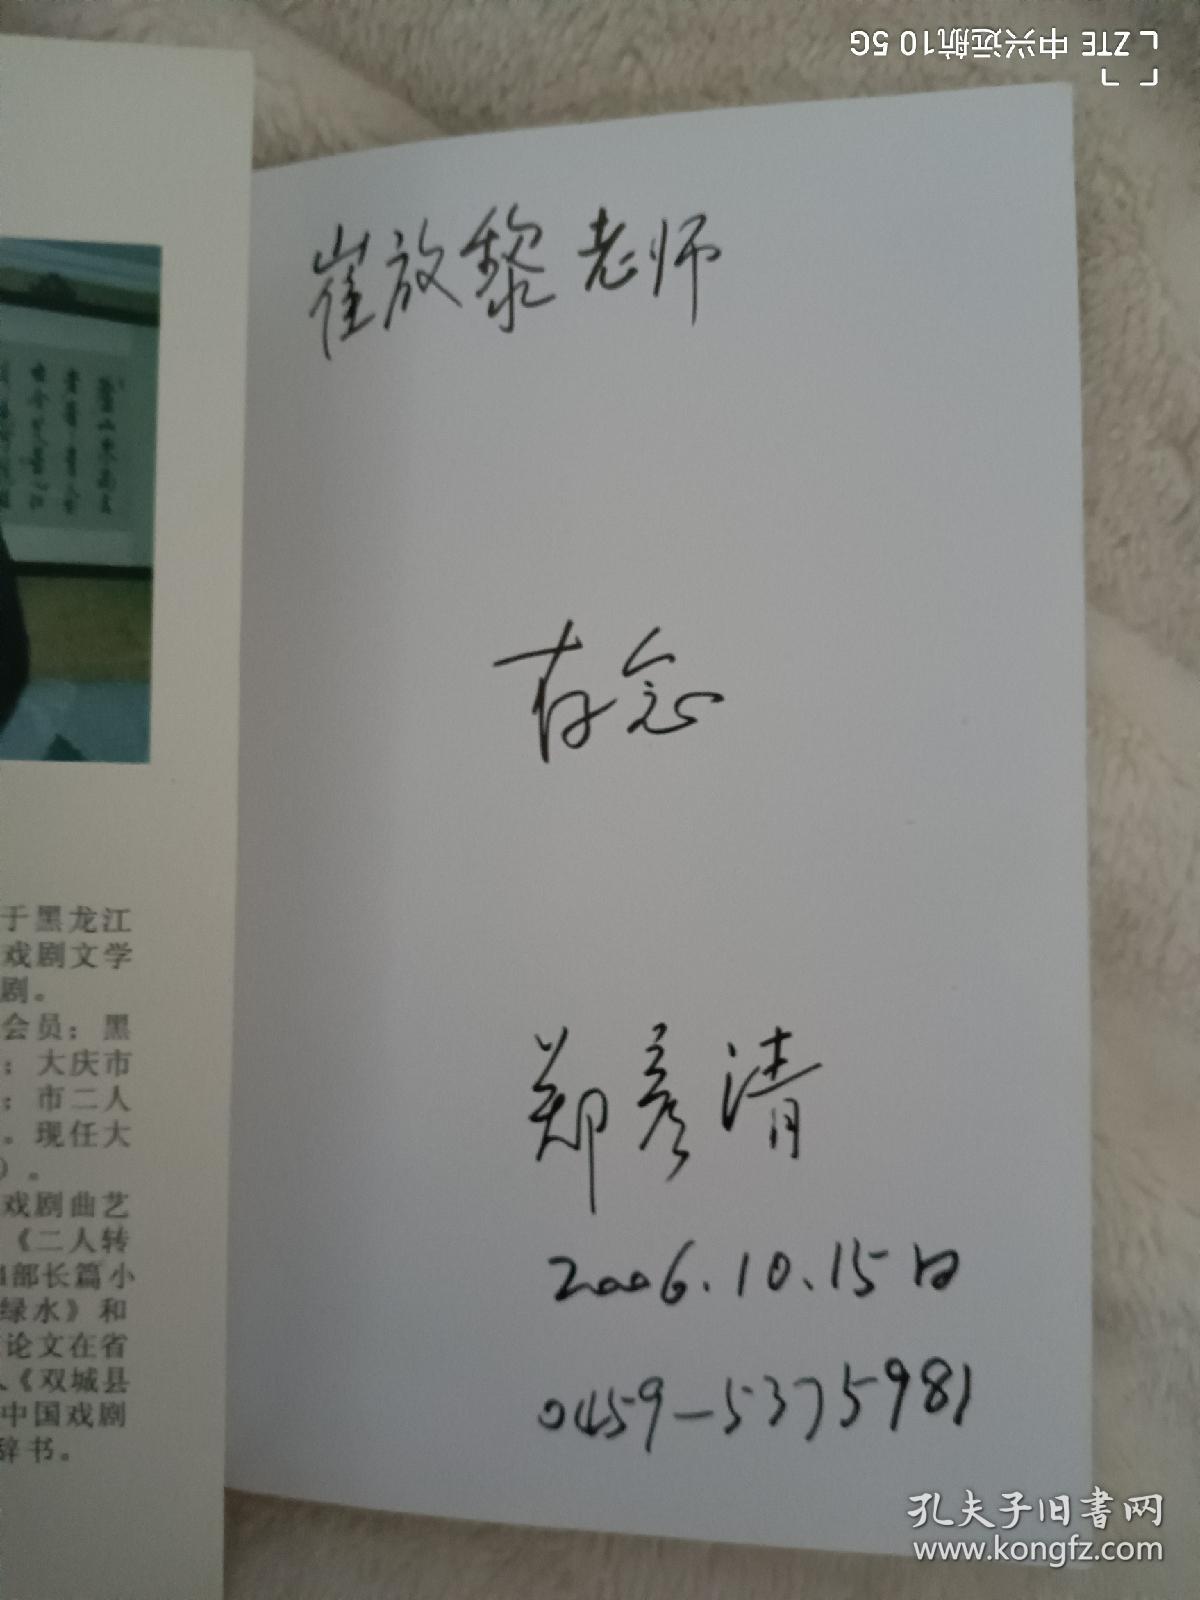 ZTE 中兴远航10 5G
崔放黎老师
存念
郑彦清
2006.10.15日
0459-5375981
于黑龙江
戏剧文学
剧。
会员；黑
；大庆市
；市二人
。现任大
）。
戏剧曲艺
《二人转
部长篇小
绿水》和
论文在省
《双城县
中国戏剧
辞书。
孔夫子旧书网
www.kongfz.com